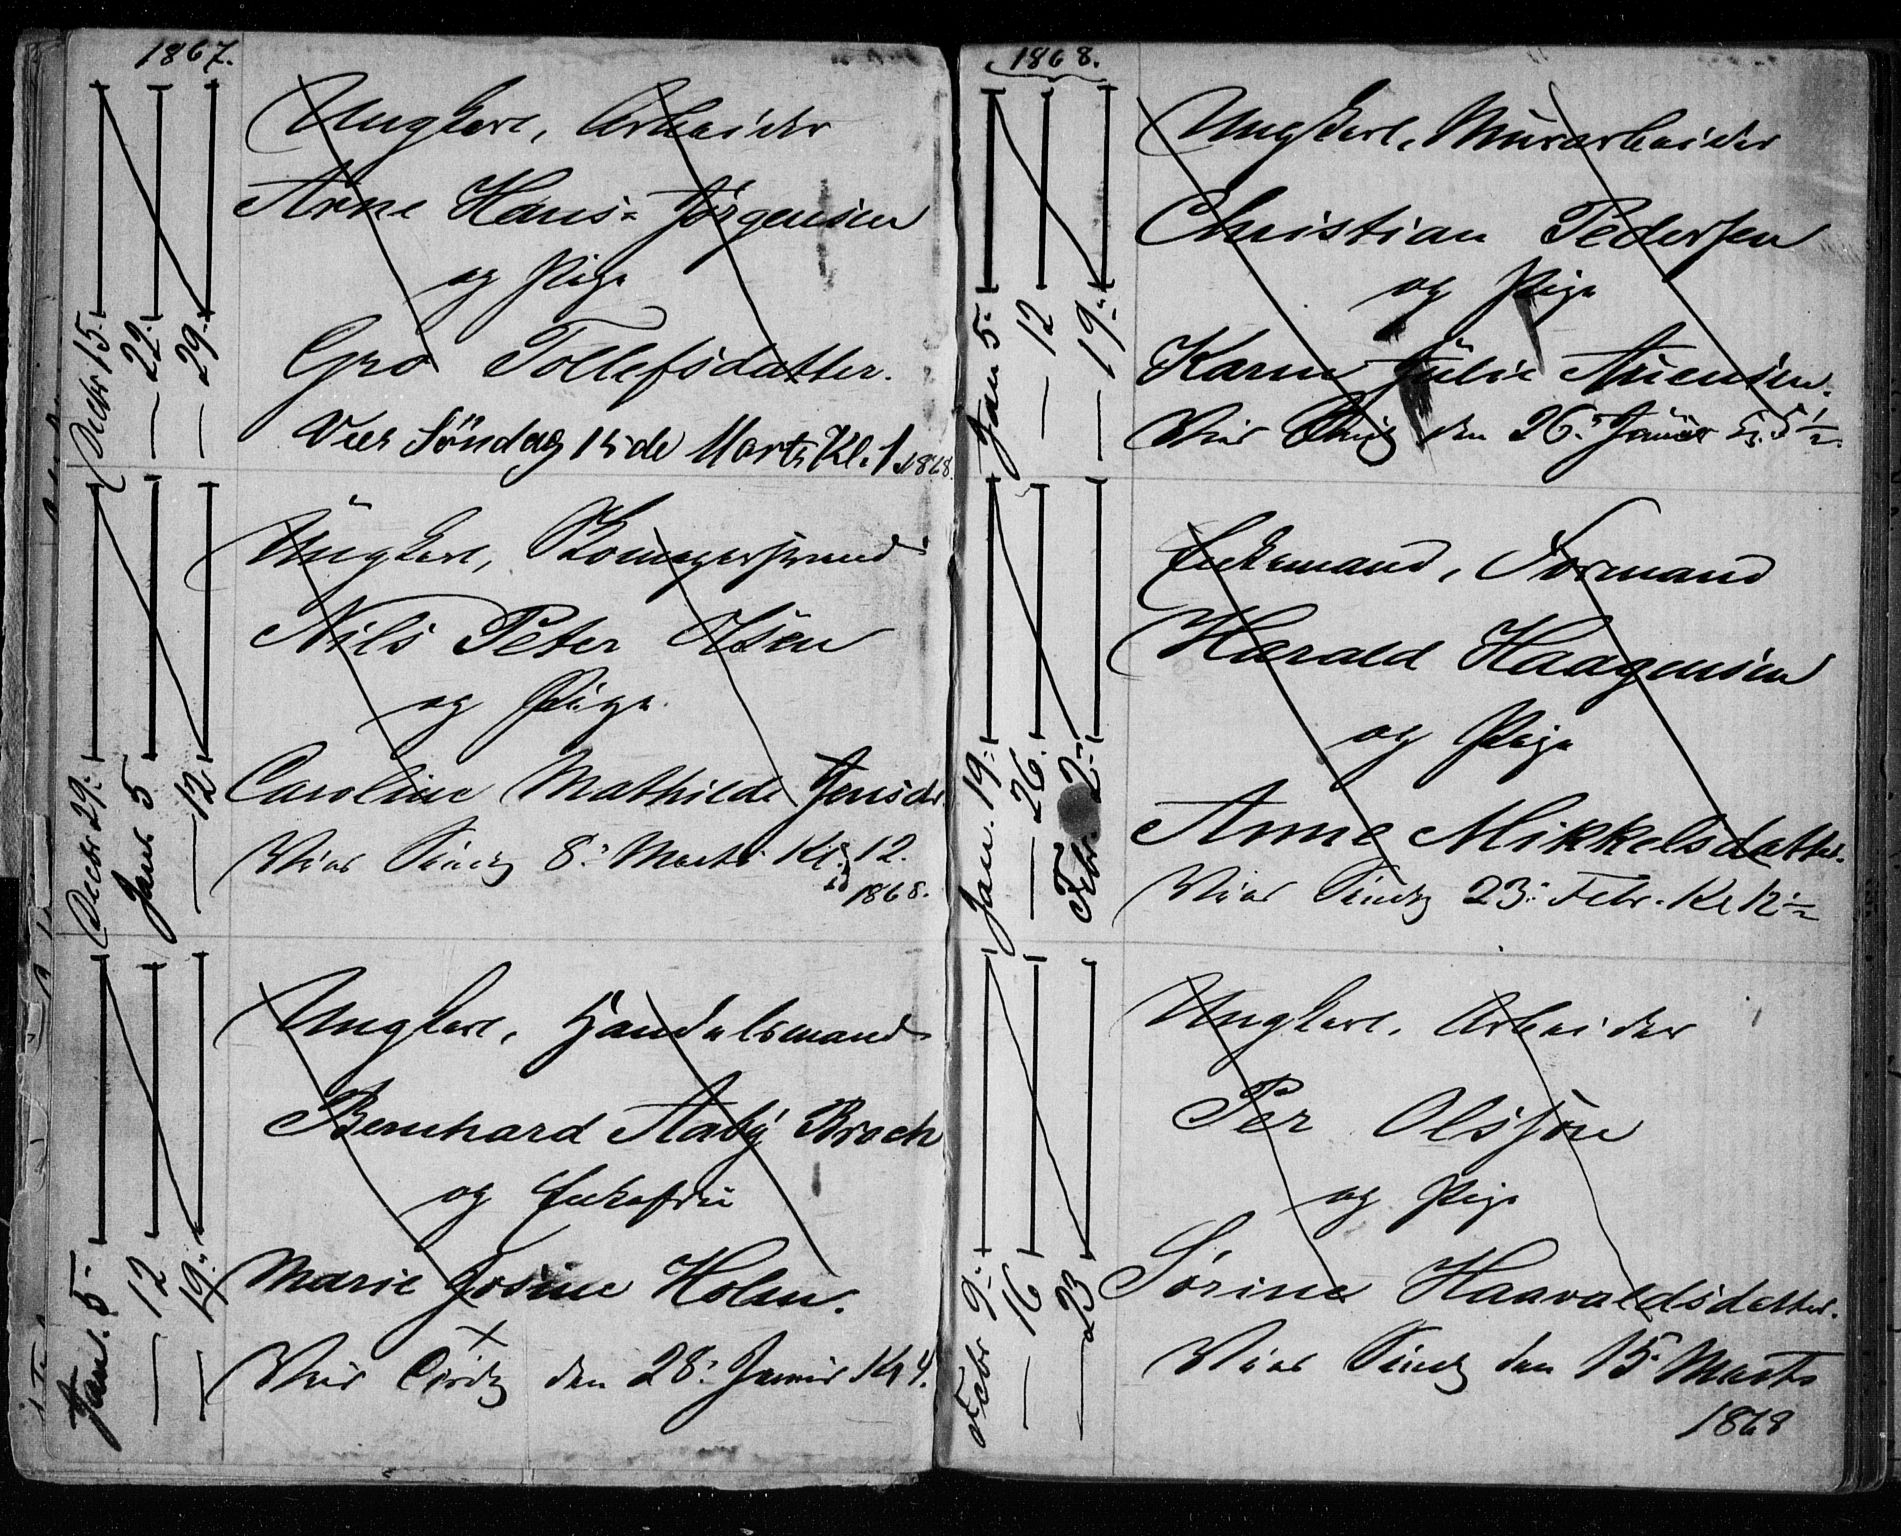 1867.
Decbr 15.
— 22.
— 29.
Ungkarl, Arbeider
Arne Hans: Jørgensen
og Pige
Gro Tollefsdatter.
Vies Søndag 15de Marts Kl. 1 1868
Decbr 29.
Janr 5
— 12
Ungkarl, Skomagersvend
Nils Peter Olsen
og Pige.
Caroline Mathilde Jensdr.
Vies Søndg 8: Marts Kl. 12.
1868.
Jan. 5.
— 12
— 19.
Ungkarl, Handelsmand
Bernhard Aaby Broch
og Enkefru
Marie Josine Holm.
Vies den 28: Januar Kl 4.
1868.
Jan 5.
— 12
— 19.
Ungkarl, Murarbeider
Christian Pedersen
og Pige
Karen Julie Auensen.
Vies den 26. Januar Kl. 5½.
Jan. 19.
— 26.
Febr. 2.
Enkemand, Formand
Harald Haagensen
og Pige
Anne Mikkelsdatter.
Vies Søndg 23: Febr. Kl 12½
Febr 9.
— 16
— 23
Ungkarl. Arbeider
Per Olsson
og Pige
Sørine Haavaldsdatter.
Vies Søndg den 15. Marts
1868